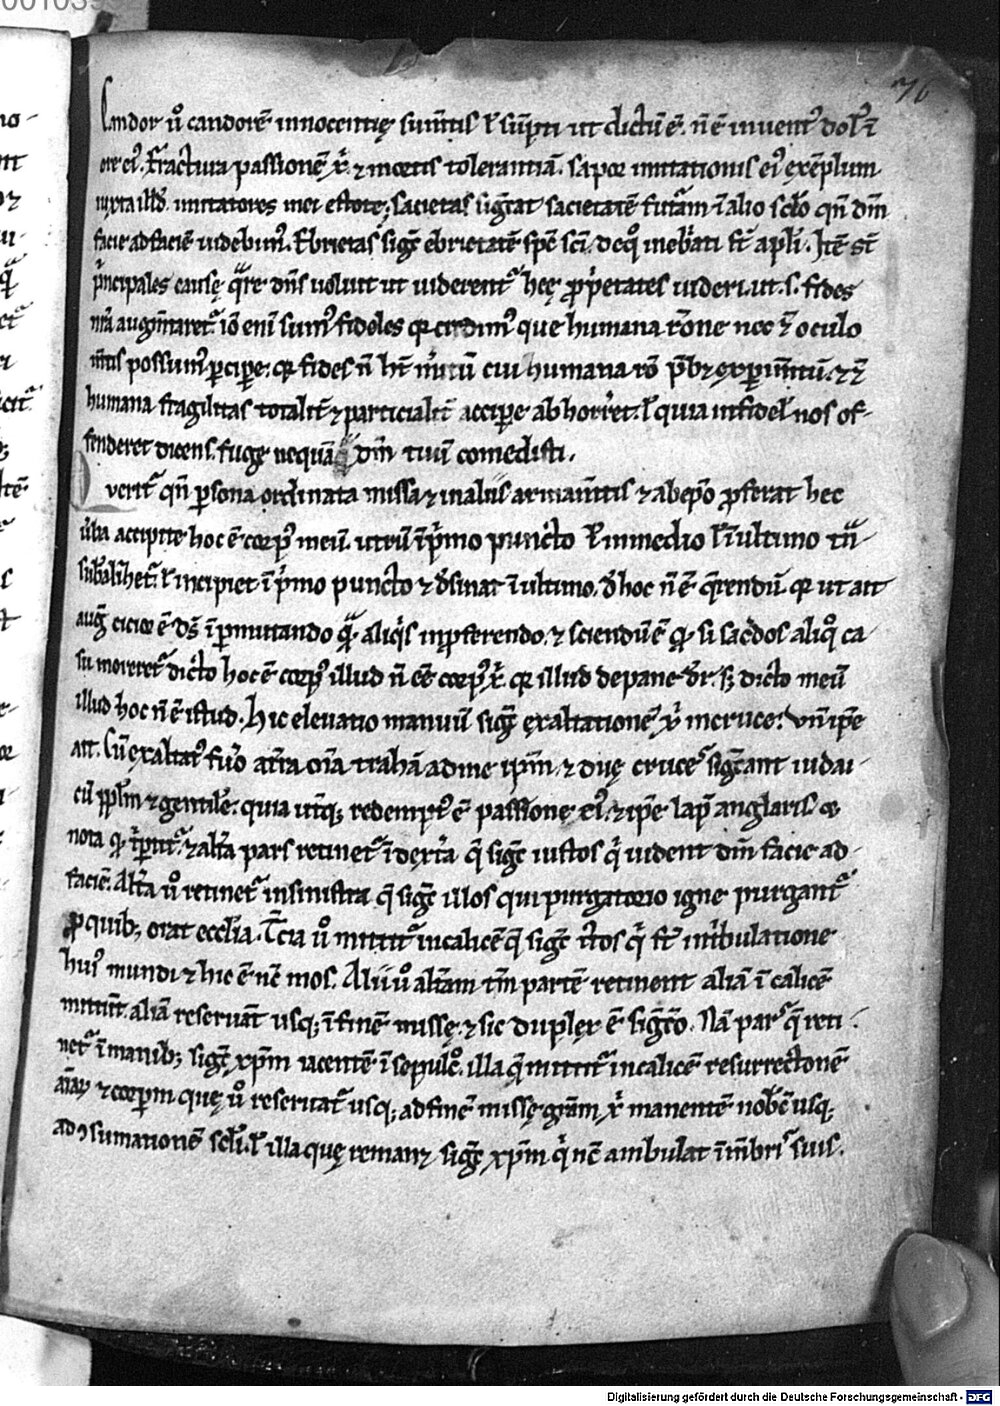 76
Candor u͛o candorē innocentię sum̄tis ł sūpti ut dictū ē. n̄ ē inuent᷒ dol᷒ ī
ore ei᷒. Fractura passionē xp̄i ⁊ mortis tolerantiā. sapor imitationis ei᷒ exēplum
iuxta illud. imitatores mei estote; sacietas sigt̄at sacietatē futurā ī alio sc̄lo qn̄ dm̄
facie ad faciē uidebim᷒. Ebrietas sigt̄ ebrietatē spc̄ sc̄i de q͛ inebriati st̄ apl̄i. Itē st̄
p͛ncipales causę quare dn̄s uoluit ut uiderent᷒ hęc p͛p͛etates uideri. ut .s. fides
nr̄a augm̄taret᷒. iō eni sum᷒ fideles q͛ credim᷒ que humana rōne nec ī oculo
m̄tis possum᷒ p̄cipe. q͛ fides n̄ ht̄ m͛itū cui humana rō p̄bꝫ expim̄tū. ⁊
humana fragilitas totalit᷒ ⁊ particialit᷒ accipe abhorret. ł quia infideł nos of-
fenderet dicens. fuge nequā dm̄ tuū comedisti.
Querit᷒ qn̄ psona ordinata missa ⁊ in aliis armam̄tis ⁊ ab ep̄o p͛ferat hec
u͛ba accipite hoc ē corp᷒ meū. utrū ī p͛mo puncto ł in medio ł ī ultimo tn̄-
incipiet ī p͛mo puncto ⁊ desinat ī ultimo. de hoc n̄ ē q͛rendū q͛ ut ait
auḡ cicior ē ds̄ ī pmutando q͛ aliq͛s in pferendo. ⁊ sciendū ē q͛ si sac͛dos aliq͛ ca-
su moreret᷒ dicto hoc ē corp᷒ illud n̄ eē corp᷒ xp̄i q͛ illud de pane dr̄. sꝫ dicto meū
illud hoc n̄ ē istud. Hic eleuatio manuū sigt̄ exaltationē xp̄i in cruce. Vn̄ ipe
ait. Cū exaltat᷒ fu͛o a tr̄a om̄ia trahā ad me ipm̄. ⁊ duę cruces sigt̄ant iudai-
cū pplm̄ ⁊ gentile. quia ut͛q; redempt᷒ ē passione ei᷒. ⁊ ipe lap᷒ anglaris ē.
nota q͛ t͛ptit᷒. ⁊ alt͛a pars retinet᷒ ī dext͛a q͛ sigt̄ iustos q͛ uident dm̄ facie ad
faciē. Alt͛a u͛o retinet᷒ in sinistra q͛ sigt̄ illos qui purgatorio igne purgant᷒
p͛ quib; orat eccl̄ia. T͛cia u͛o mittit᷒ in calicē q͛ sigt̄ illos q͛ st̄ in t͛bulatione
hui᷒ mundi ⁊ hic ē nc̄ mos. Alii u͛o alt͛am tm̄ partē retinent aliā ī calicē
mittūt. aliā reseruāt usq; ī finē missę. ⁊ sic duplex ē sigt̄io. Nā pars q͛ reti-
net᷒ ī manib; sigt̄ xp̄m iacentē ī sepulc͛o. illa q͛ mittit᷒ in calicē resurrectionē
aīarū ⁊ corpm. quę u͛o reseruat᷒ usq; ad finē missę gr̄am xp̄i manentē nob̄c usq;
ad ꝯsumationē sc̄li. ł illa quę remanꝫ sigt̄ xp̄m q͛ nc̄ ambulat ī m̄bris suis.
Digitalisierung gefördert durch die Deutsche Forschungsgemeinschaft - DFG